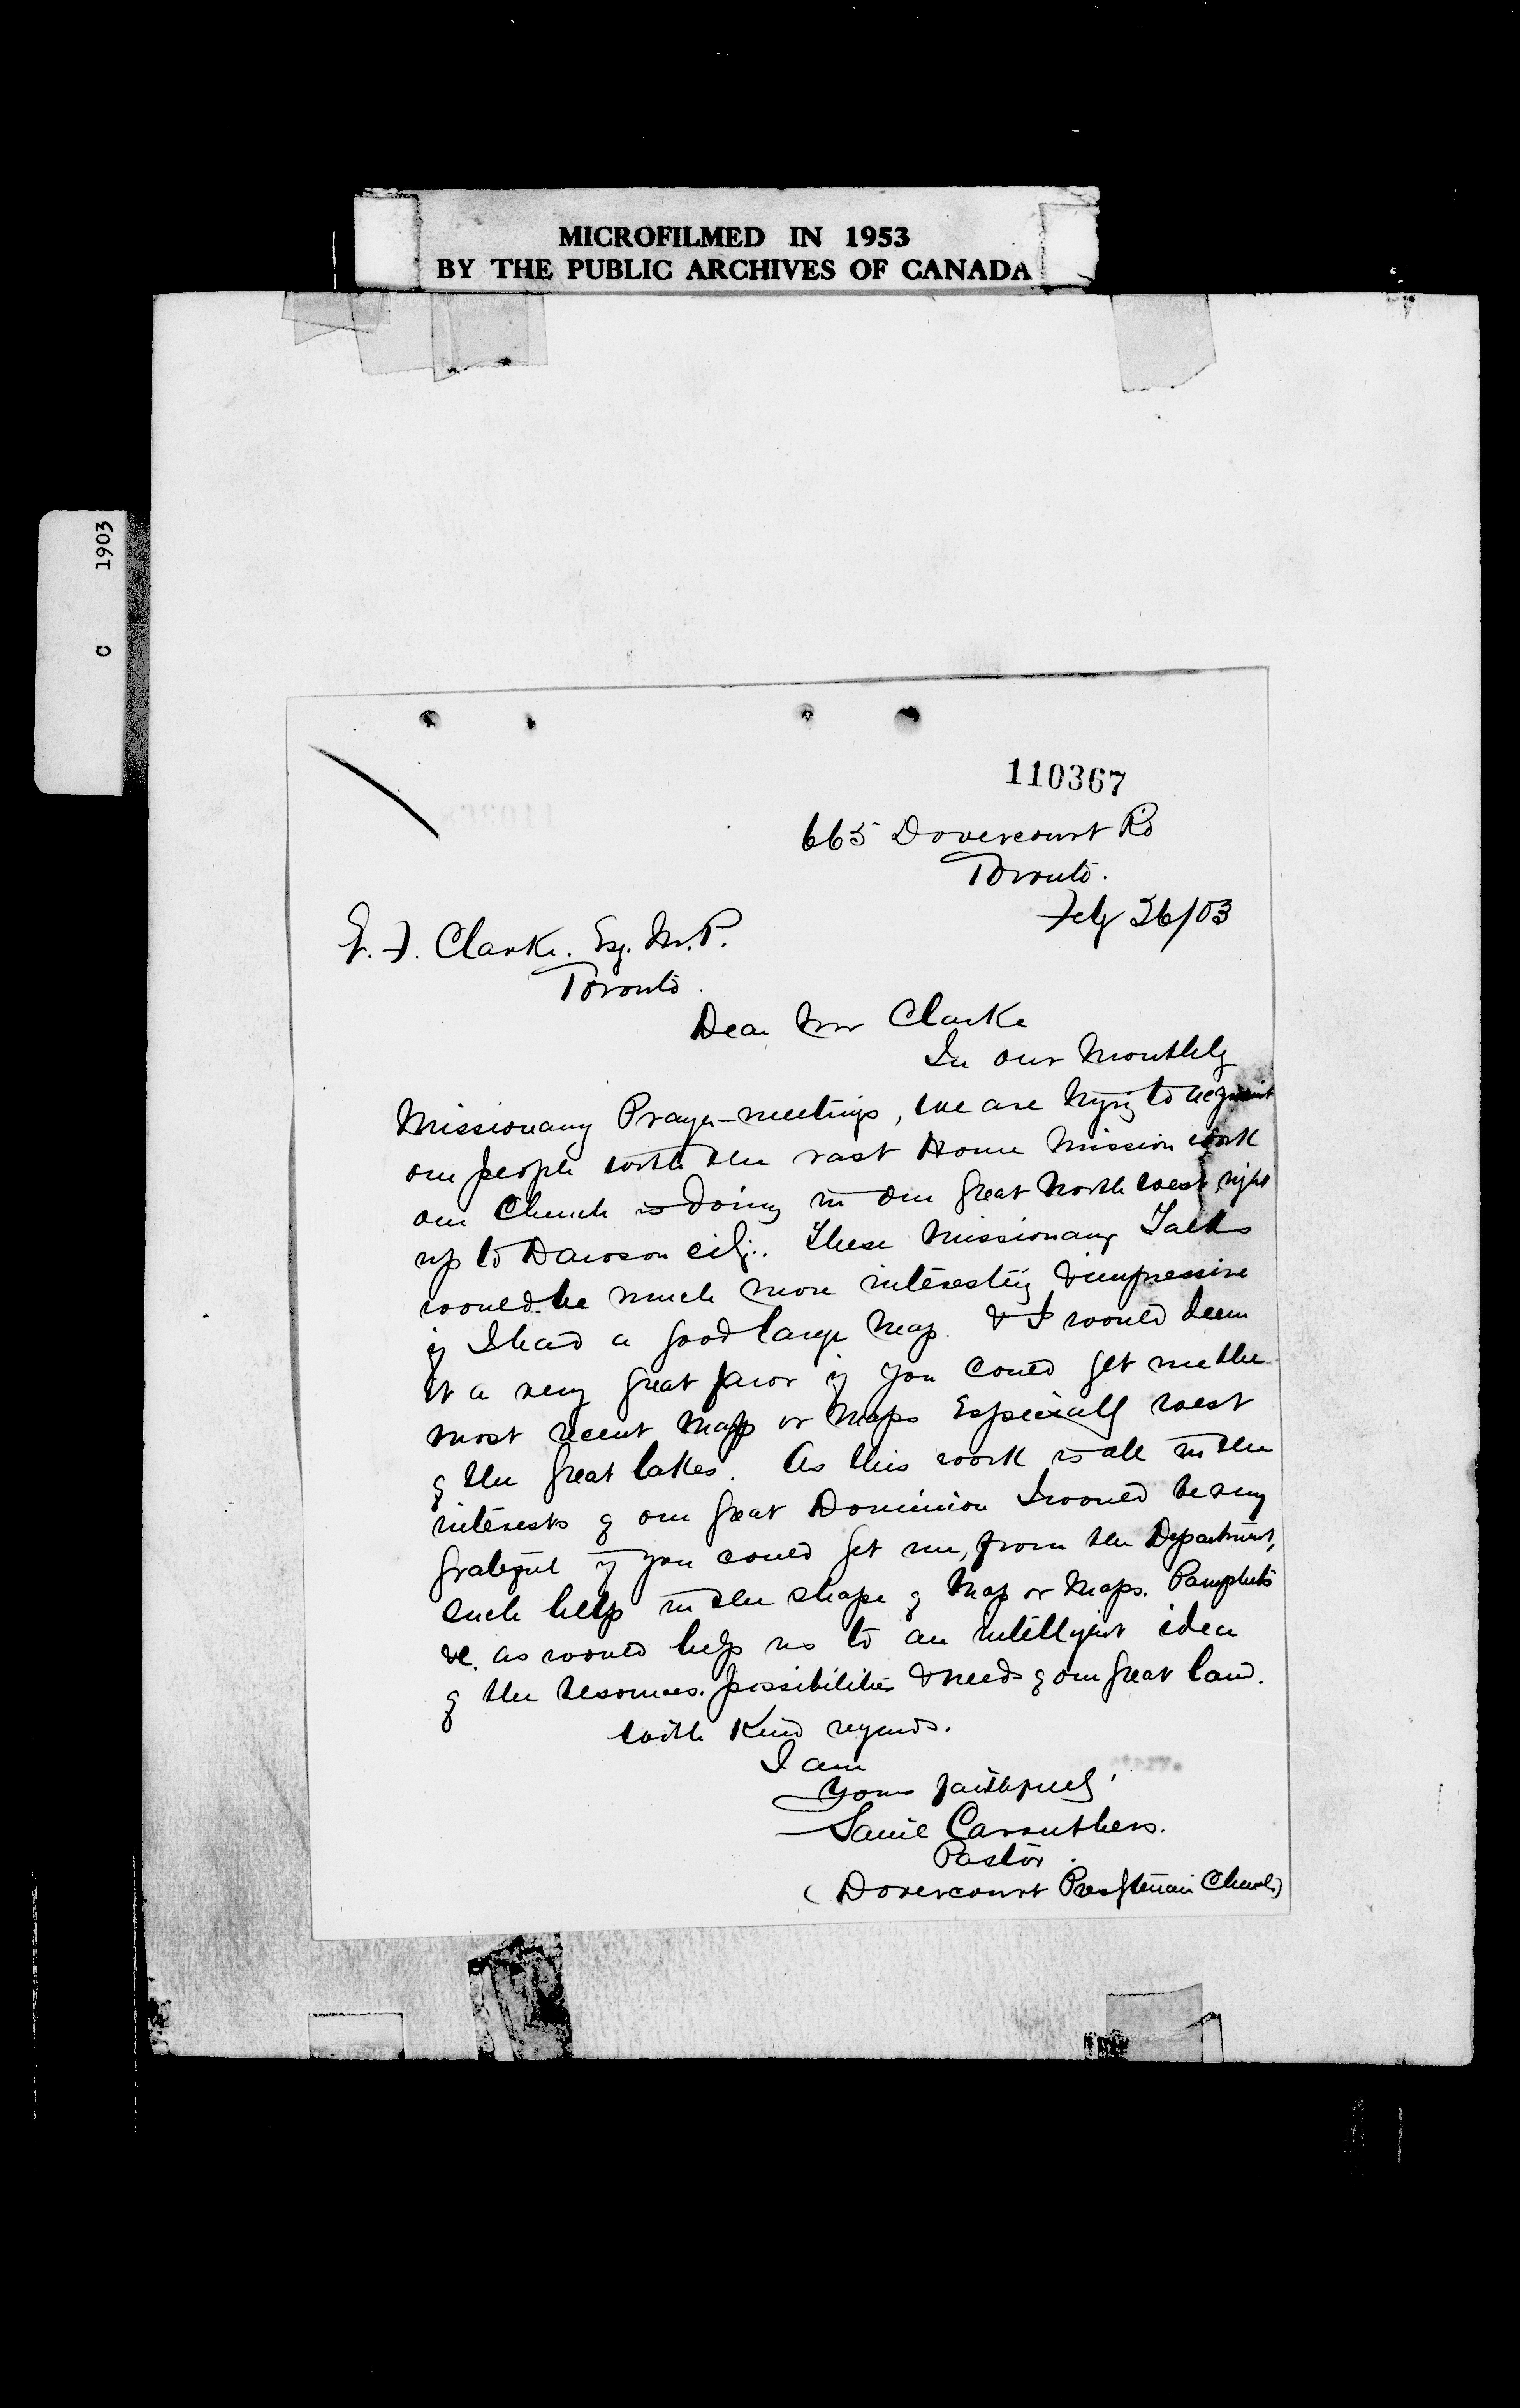 MICROFILMED IN 1953
BY THE PUBLIC ARCHIVES OF CANADA
C 1903
110367
665 Dovercourt Rd
Toronto.
Feby 26/03
E. F. Clarke. Esq. M.P.
Toronto.
Dear Mr Clarke
In our Monthly
Missionary Prayer-meetings, we are trying to acquaint
our people with the vast Home Mission work
our Church is doing in our great North west, right
up to Dawson city. These Missionary Talks
would be much more interesting & impressive
if I had a good large Map. & I would deem
it a very great favor if you could get me the
most recent Map or Maps Especially west
of the great lakes. As this work is all in the
interests of our great Dominion I would be very
grateful if you could get me, from the Department,
such help in the shape of Map or Maps. Pamphlets
&c. as would help us to an intelligent idea
of the resources. possibilities & needs of our great land.
With Kind regards.
I am
Yours faithfully
Saml Carruthers.
Pastor.
(Dovercourt Presbyterian Church)